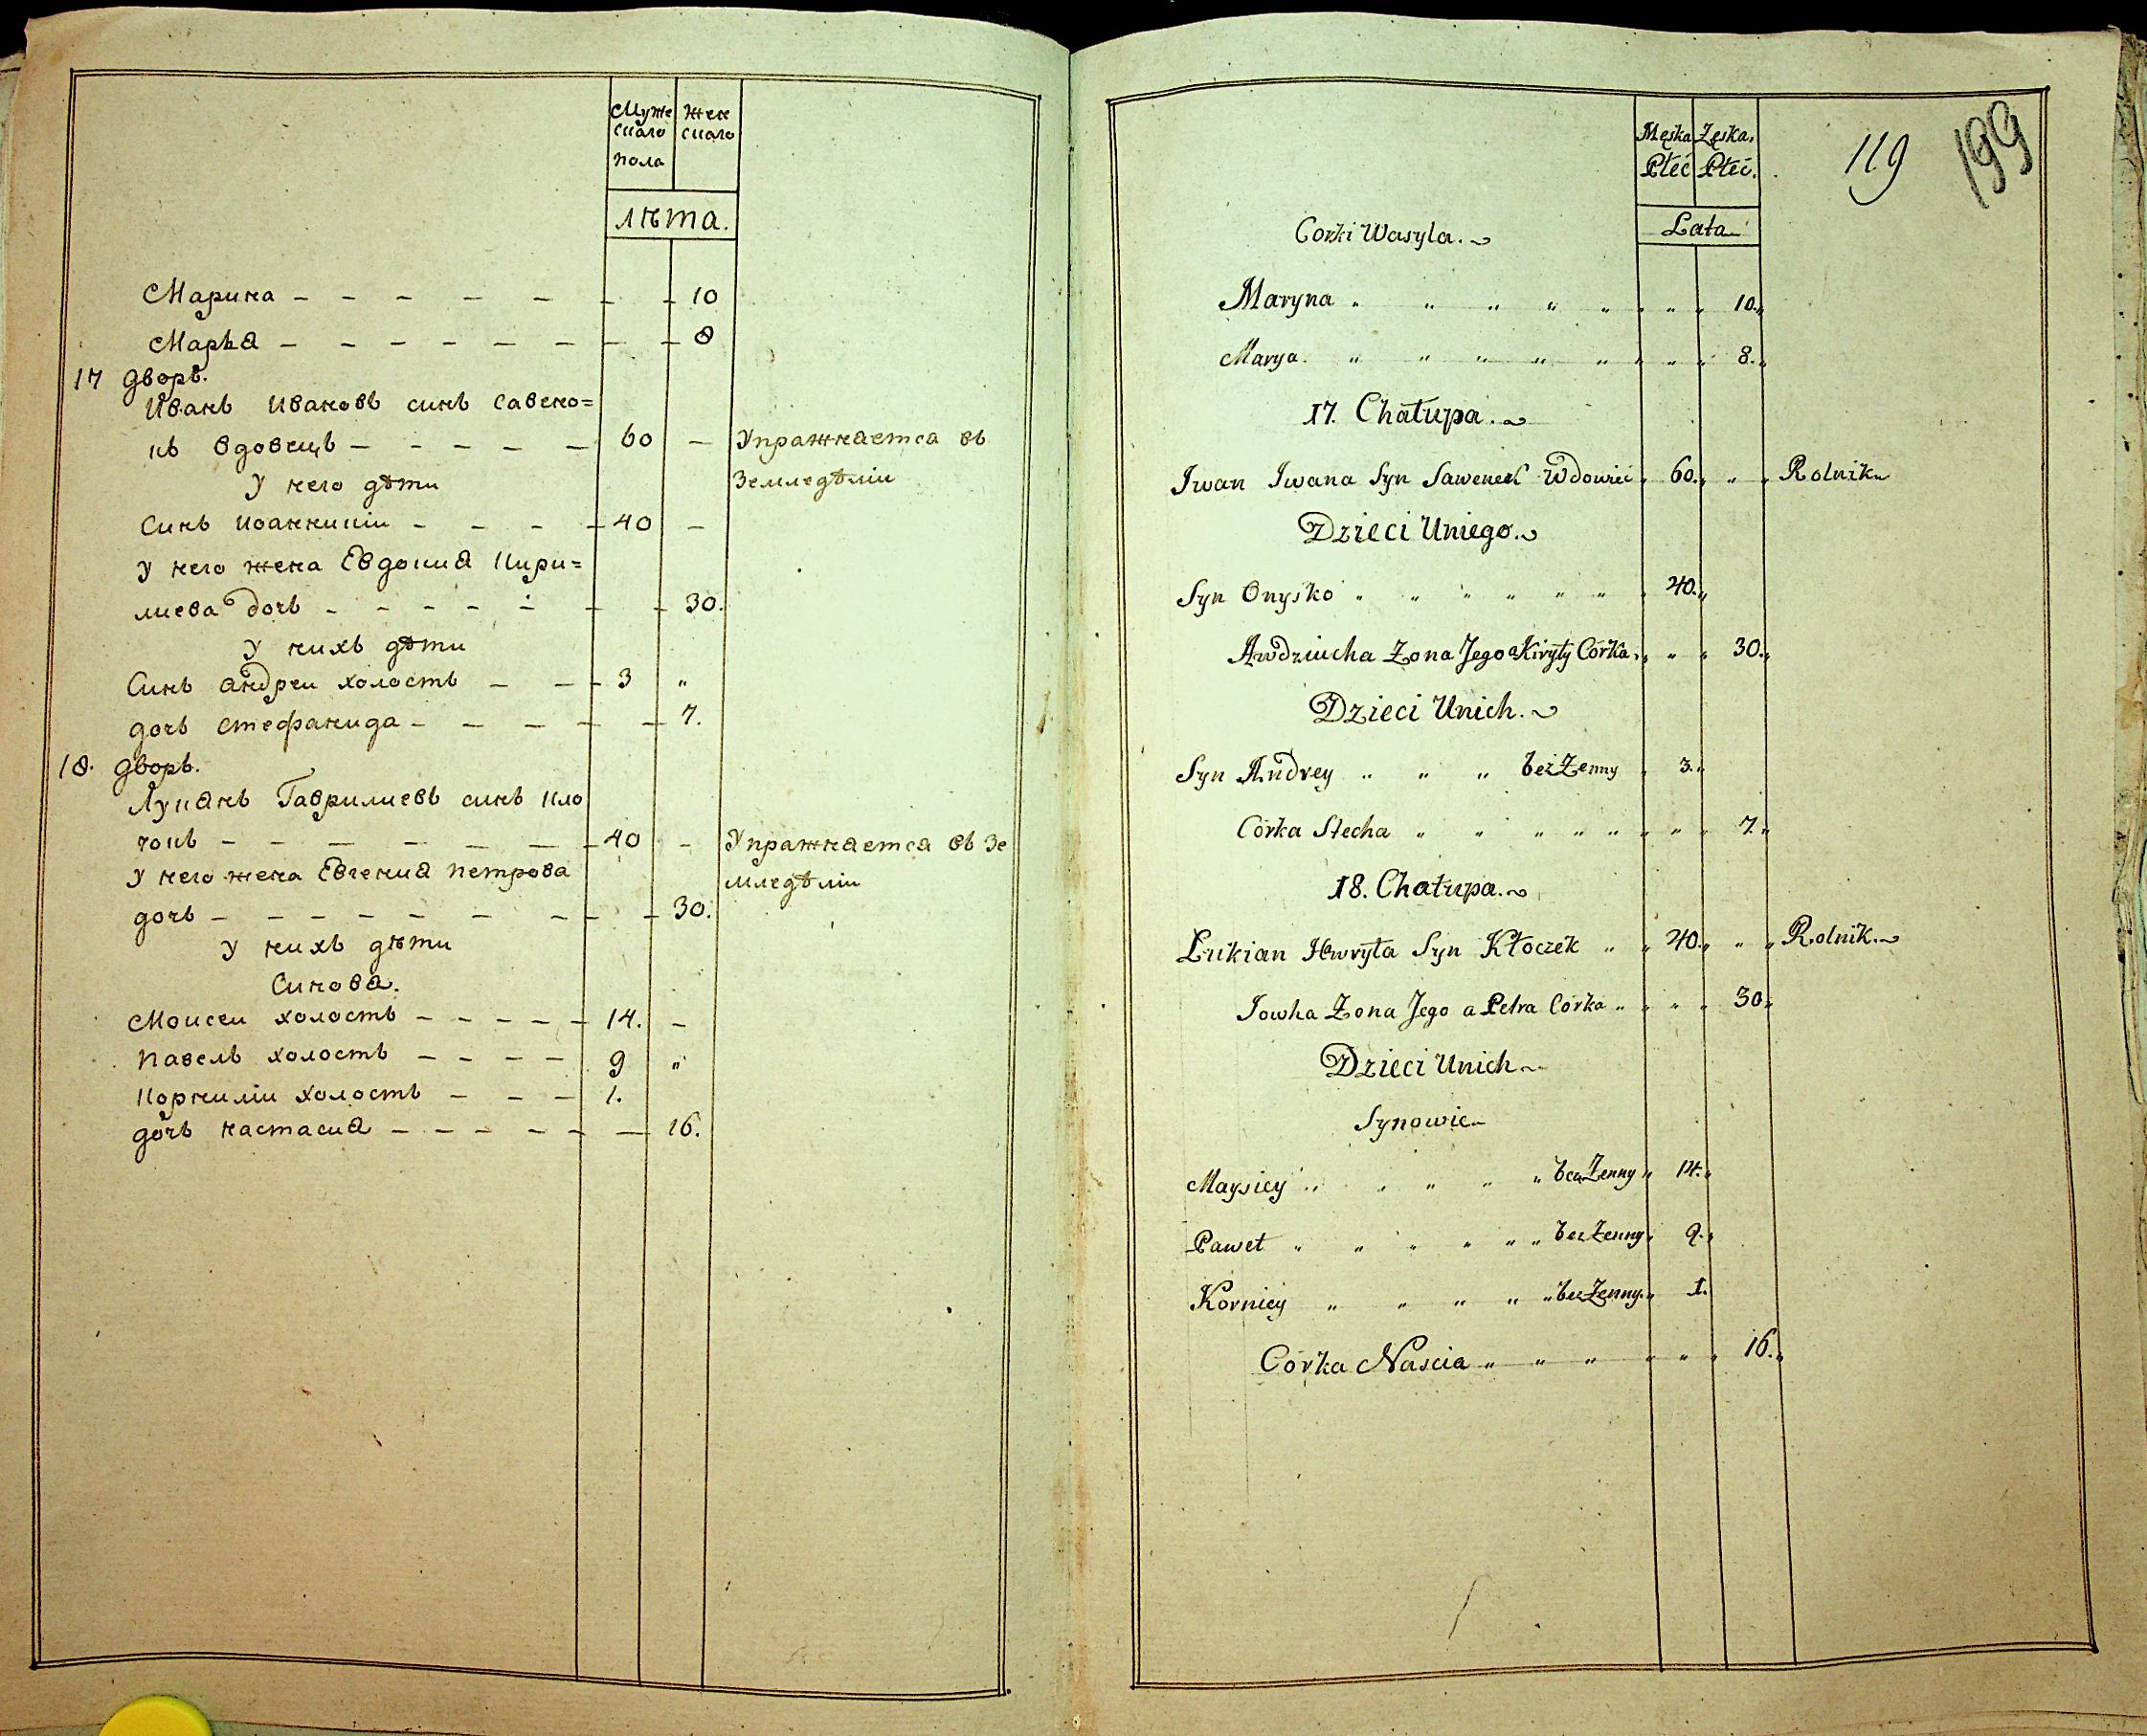 Муже
скаго
пола
жен
скаго
лѣта.
Марина — — — — — — — 10
Марья — — — — — — — 8
17 дворъ.
Иванъ Ивановъ синъ Савено=
къ вдовецъ — — — — — 60 — Упражняется въ
У него дѣти
земледѣліи
Синъ Иоанникіи — — — — 40 —
У него жена Евдокия Кири=
лиева дочь — — — — — — — 30.
У нихъ дѣти
Синъ андреи холостъ — — — 3 „
дочь стефанида — — — — — 7.
18. дворъ.
Лукянъ Гаврилиевъ синъ Кло
чокъ — — — — — — — 40 — Упражняется въ зе
У него жена Евгения петрова
мледѣліи
дочь — — — — — — — — — 30.
У нихъ дѣти
Синова.
Моисеи холостъ — — — — — 14. —
павелъ холостъ — — — — 9 „
Корнилiи холостъ — — — 1.
дочь настасия — — — — — — 16.
Męska
Płeć
Zęska
Płeć.
119
199
Lata
Corki Wasyla.
Maryna „ „ „ „ „ „ „ „ 10.„
Marya. „ „ „ „ „ „ „ „ 8.„
17. Chałupa.
Iwan Iwana Syn Sawenek Wdowiec „ 60.„ „ „ Rolnik
Dzieci Uniego.
Syn Onysko „ „ „ „ „ „ 40.„
Awdziucha Zona Jego a Kiryły Córka. „ „ „ 30.„
Dzieci Unich.
Syn Andrey „ „ „ bezZenny „ 3.„
Córka Stecha „ „ „ „ „ „ „ „ 7.„
18. Chałupa.
Łukian Hawryła Syn Kłoczek „ „ 40.„ „ „ Rolnik.
Jowha Zona Jego a Petra Córka „ „ „ „ 30.„
Dzieci Unich
Synowie
Maysiey „ „ „ „ „ bezZenny „ 14.„
Paweł „ „ „ „ „ „ bezZenny „ 9.„
Korniey „ „ „ „ „ bezZenny. „ 1.
Córka Nascia „ „ „ „ „ „ 16.„